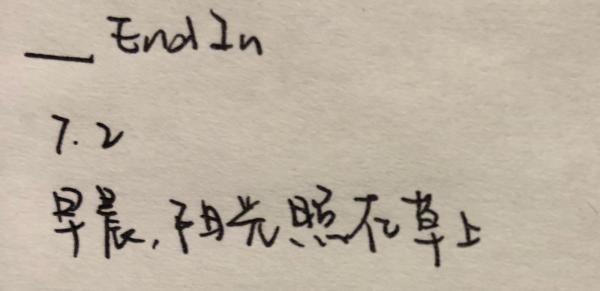 __ EndIn
7.2
早晨,阳光照在草上